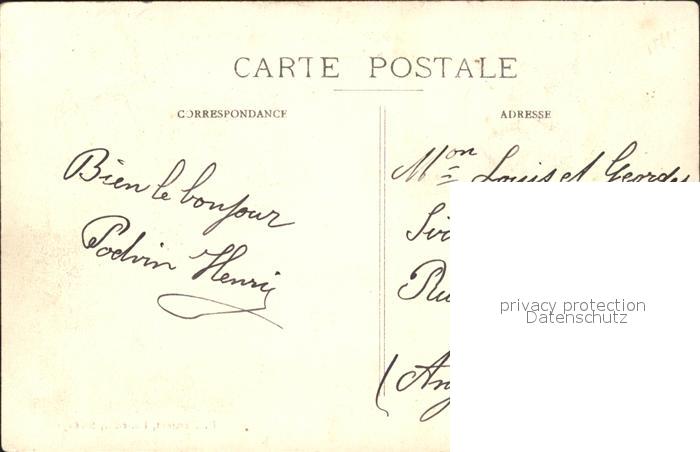 CARTE POSTALE
CORRESPONDANCE
ADRESSE
Bien le bonjour
Podvin Henri
Mon Louis et Georges
Ru
(Ang
privacy protection
Datenschutz